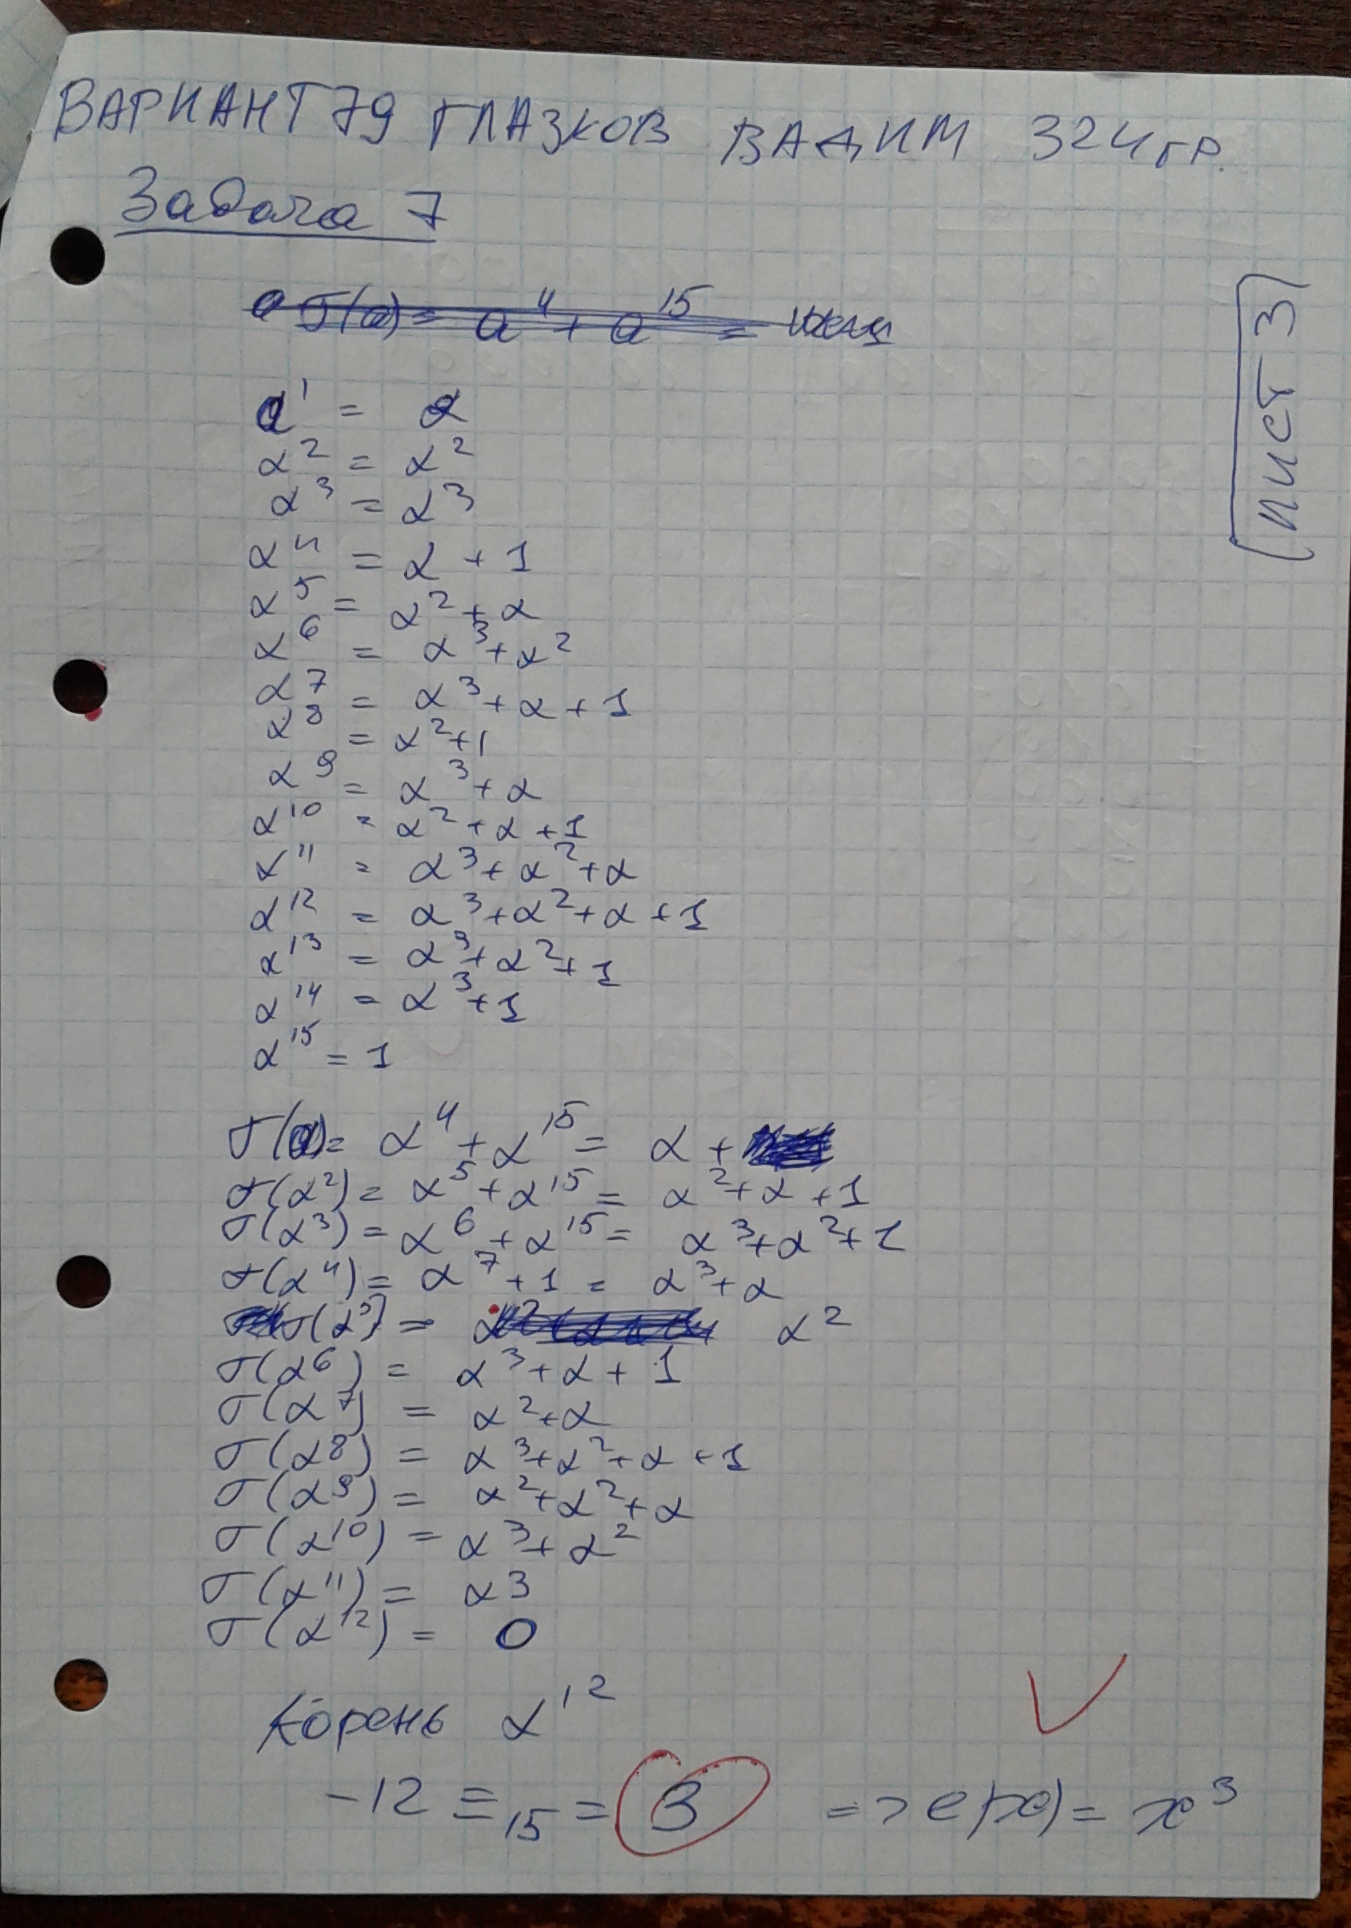 ВАРИАНТ 79 ГЛАЗКОВ ВАДИМ 324 гр.
Задача 7
ЛИСТ 3
σ(α) = α⁴ + α¹⁵ =
α¹ = α
α² = α²
α³ = α³
α⁴ = α + 1
α⁵ = α² + α
α⁶ = α³ + α²
α⁷ = α³ + α + 1
α⁸ = α² + 1
α⁹ = α³ + α
α¹⁰ = α² + α + 1
α¹¹ = α³ + α² + α
α¹² = α³ + α² + α + 1
α¹³ = α³ + α² + 1
α¹⁴ = α³ + 1
α¹⁵ = 1
σ(α) = α⁴ + α¹⁵ = α +
σ(α²) = α⁵ + α¹⁵ = α² + α + 1
σ(α³) = α⁶ + α¹⁵ = α³ + α² + 1
σ(α⁴) = α⁷ + 1 = α³ + α
σ(α⁵) = α²
σ(α⁶) = α³ + α + 1
σ(α⁷) = α² + α
σ(α⁸) = α³ + α² + α + 1
σ(α⁹) = α² + α² + α
σ(α¹⁰) = α³ + α²
σ(α¹¹) = α3
σ(α¹²) = 0
Корень α¹²
-12 ≡₁₅ = 3 => e(x) = x³